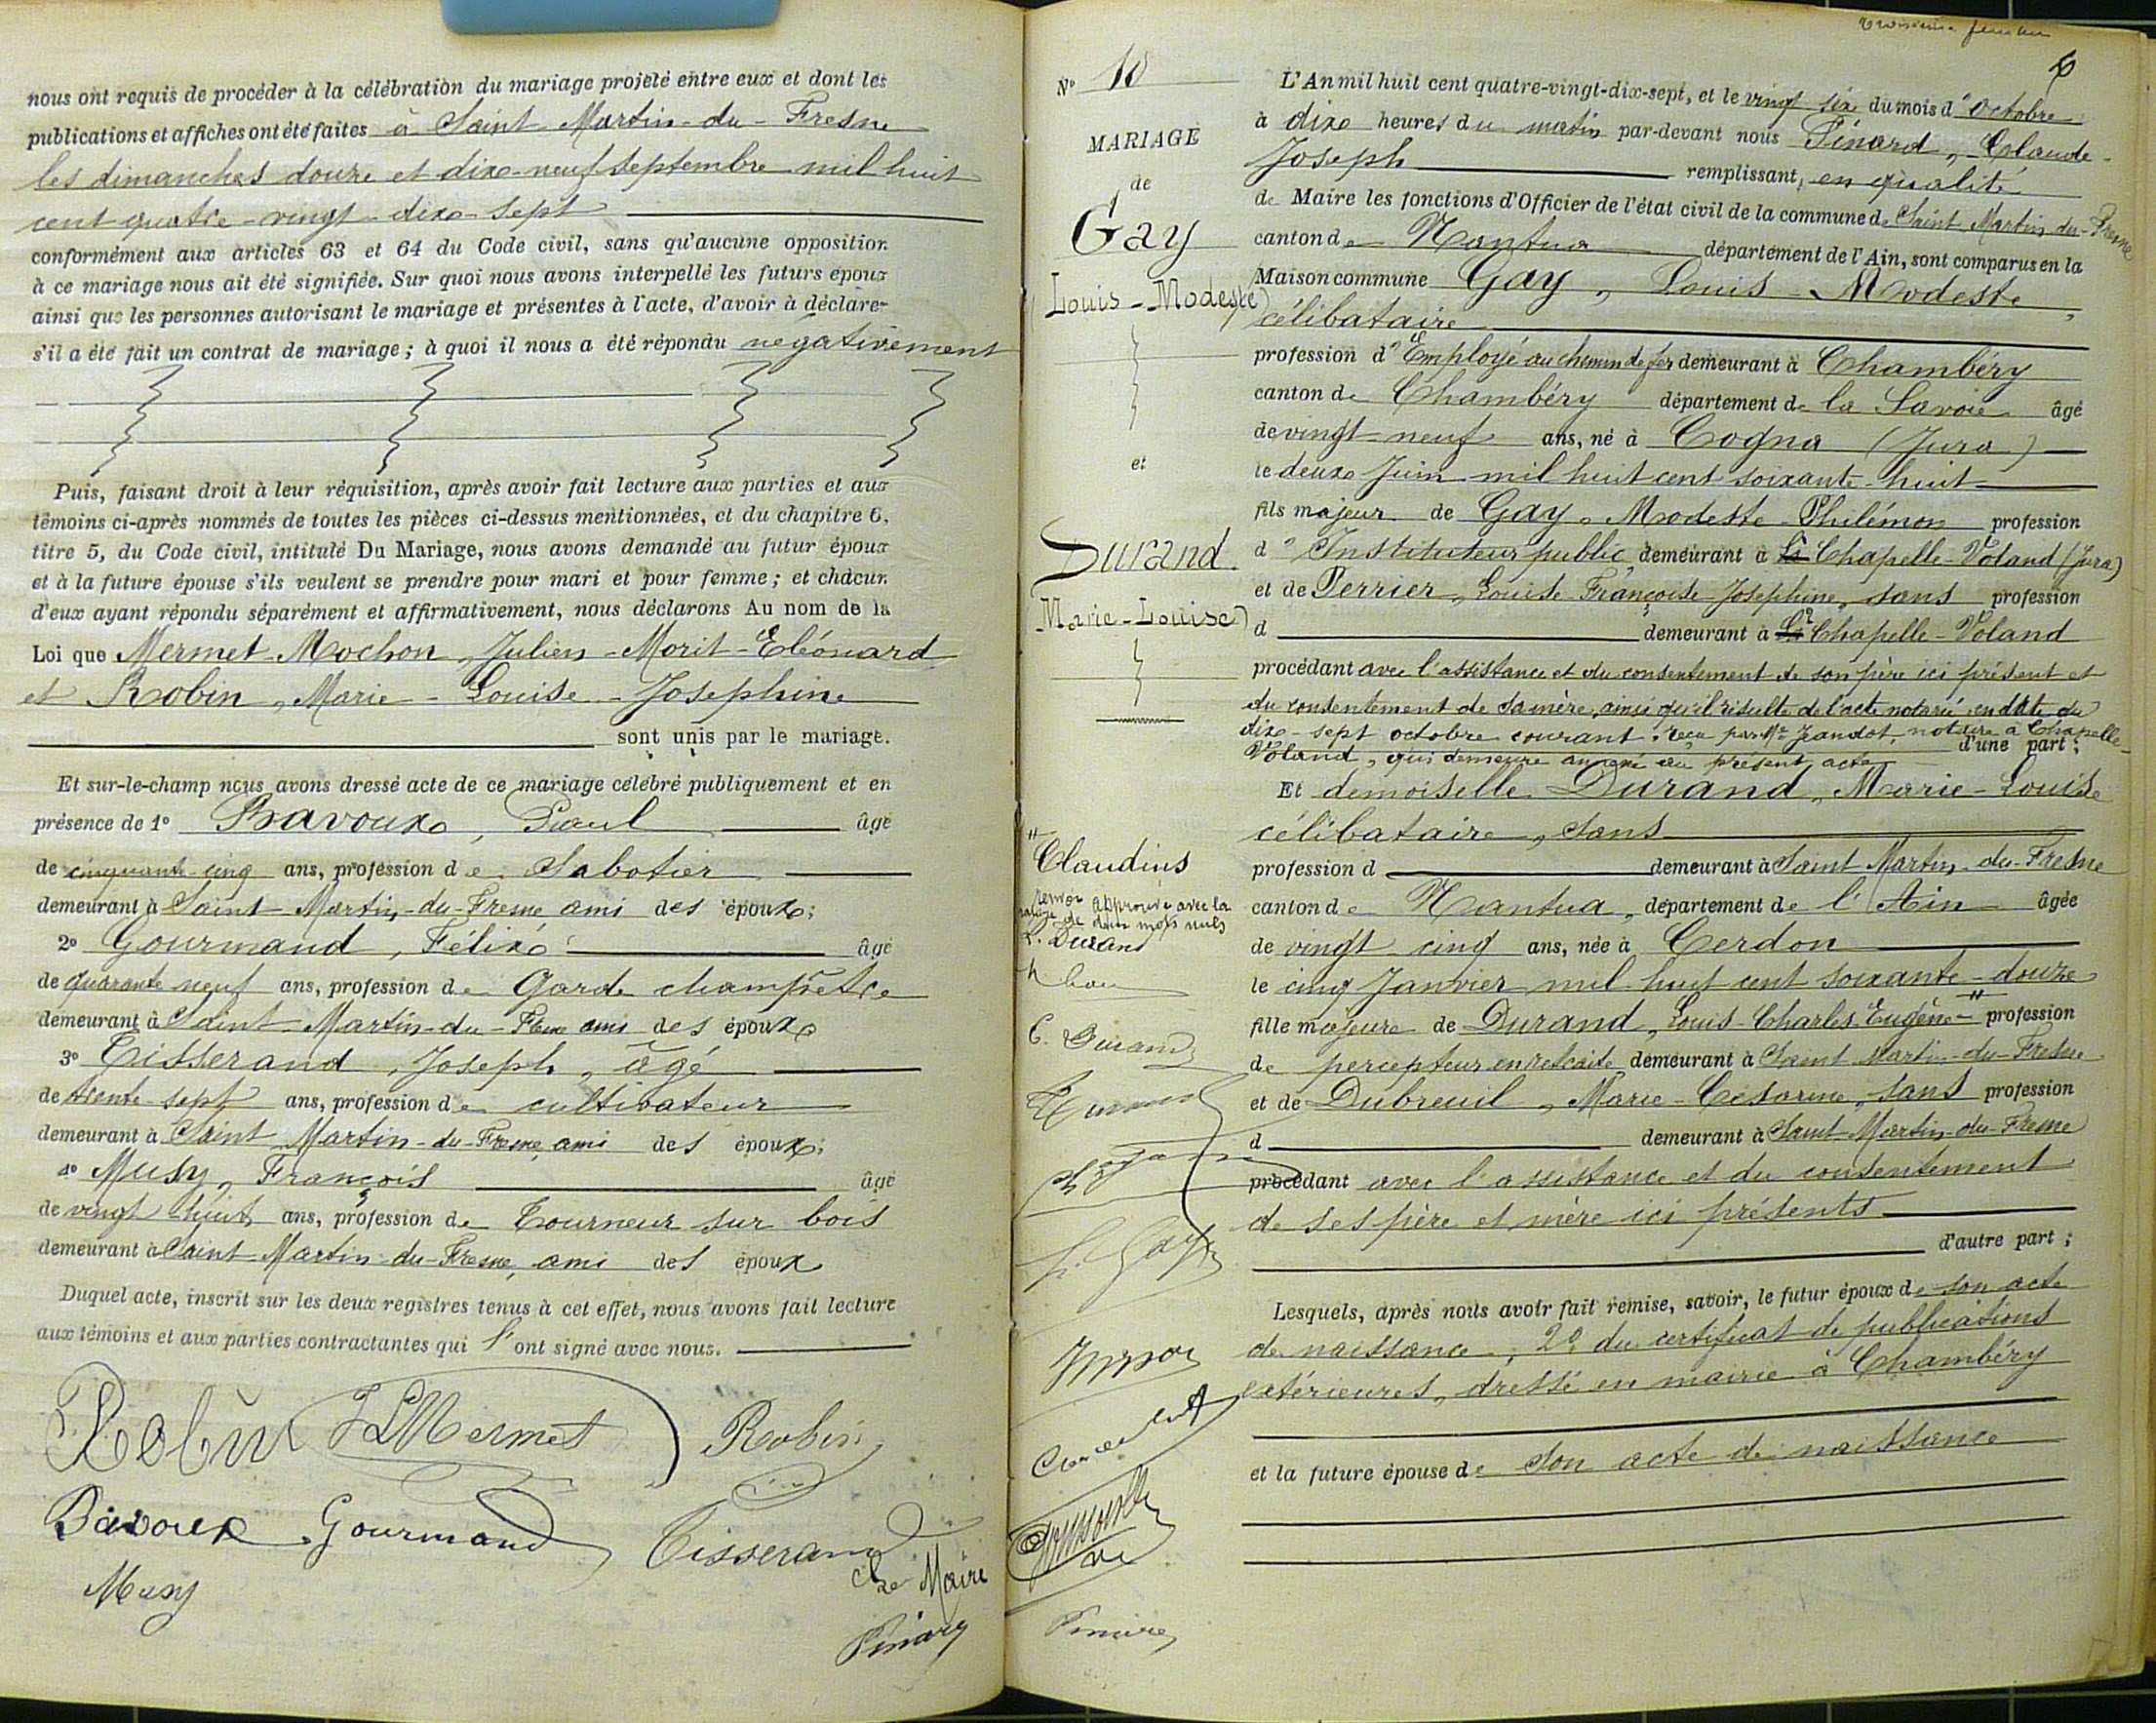 nous ont requis de procéder à la célébration du mariage projeté entre eux et dont les
publications et affiches ont été faites à Saint Martin-du-Fresne
les dimanches douze et dix-neuf septembre mil huit
cent quatre-vingt-dix-sept
conformément aux articles 63 et 64 du Code civil, sans qu'aucune opposition
à ce mariage nous ait été signifiée. Sur quoi nous avons interpellé les futurs époux
ainsi que les personnes autorisant le mariage et présentes à l'acte, d'avoir à déclarer
s'il a été fait un contrat de mariage ; à quoi il nous a été répondu négativement
Puis, faisant droit à leur réquisition, après avoir fait lecture aux parties et aux
témoins ci-après nommés de toutes les pièces ci-dessus mentionnées, et du chapitre 6,
titre 5, du Code civil, intitulé Du Mariage, nous avons demandé au futur époux
et à la future épouse s'ils veulent se prendre pour mari et pour femme ; et chacun
d'eux ayant répondu séparément et affirmativement, nous déclarons Au nom de la
Loi que Mermet-Mochon, Julien-Morit-Eléonard
et Robin, Marie-Louise-Josephine
sont unis par le mariage.
Et sur-le-champ nous avons dressé acte de ce mariage célébré publiquement et en
présence de 1° Bavoux, Paul âgé
de cinquante-cinq ans, profession de Sabotier
demeurant à Saint-Martin-du-Fresne ami des époux;
2° Gourmand, Félix âgé
de quarante neuf ans, profession de Garde champêtre
demeurant à Saint-Martin-du-Fresne ami des époux
3° Tisserand, Joseph, âgé
de trente-sept ans, profession de cultivateur
demeurant à Saint Martin-du-Fresne, ami des époux;
4° Musy, François âgé
de vingt-huit ans, profession de Tourneur sur bois
demeurant à Saint Martin-du-Fresne, ami des époux
Duquel acte, inscrit sur les deux registres tenus à cet effet, nous avons fait lecture
aux témoins et aux parties contractantes qui l'ont signé avec nous.
Robin JLMermet Robin
Bavoux Gourmand Tisserand
Musy
Le Maire
Pinard
N° 10
MARIAGE
de
Gay
Louis-Modeste
et
Durand
Marie-Louise
" Claudius
renvoi approuvé avec la
rature de deux mots nuls
L. Durand
C. Durand
L. Gay
L'An mil huit cent quatre-vingt-dix-sept, et le vingt six du mois d'octobre
à dix heures du matin par-devant nous Pinard, Claude-
Joseph remplissant, en qualité
de Maire les fonctions d'Officier de l'état civil de la commune de Saint Martin-du-Fresne
canton de Nantua département de l'Ain, sont comparus en la
Maison commune Gay, Louis-Modeste,
célibataire
profession d'Employé au chemin de fer demeurant à Chambéry
canton de Chambéry département de la Savoie âgé
de vingt neuf ans, né à Cogna (Jura)
le deux Juin mil huit cent soixante-huit
fils majeur de Gay, Modeste-Philémon profession
d'Instituteur public, demeurant à La Chapelle-Voland (Jura)
et de Perrier, Louise-Françoise-Josephine, sans profession
d demeurant à La Chapelle-Voland
procédant avec l'assistance et du consentement de son père ici présent et
du consentement de sa mère, ainsi qu'il résulte de l'acte notarié en date du
dix-sept octobre courant, reçu par Me Jeandot, notaire à Chapelle-
Voland, qui demeure annexé au présent acte d'une part ;
Et demoiselle Durand, Marie-Louise
célibataire, sans
profession d demeurant à Saint Martin-du-Fresne
canton de Nantua, département de l'Ain âgée
de vingt cinq ans, née à Cerdon
le cinq Janvier mil huit cent soixante-douze
fille majeure de Durand, Louis-Charles-Eugène-" profession
de percepteur en retraite demeurant à Saint Martin-du-Fresne
et de Dubreuil, Marie-Césarine, sans profession
d demeurant à Saint-Martin-du-Fresne
procédant avec l'assistance et du consentement
de ses père et mère ici présents
d'autre part ;
Lesquels, après nous avoir fait remise, savoir, le futur époux de son acte
de naissance, 2° du certificat de publications
extérieures, dressé en mairie à Chambéry
et la future épouse de son acte de naissance